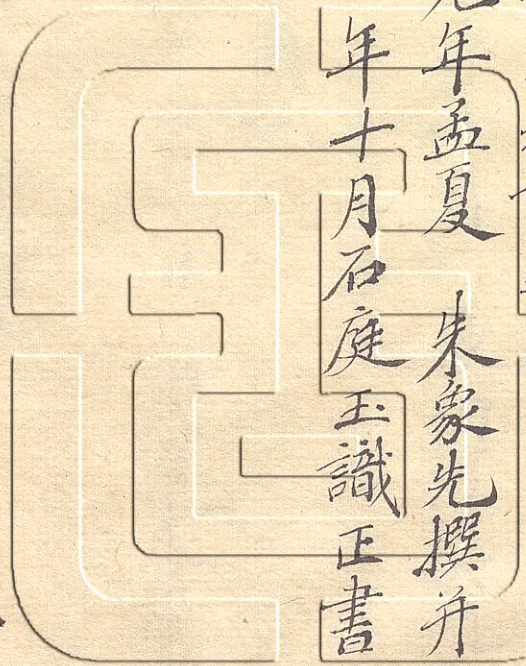 元年孟夏 朱象先撰并
年十月石庭玉識正書